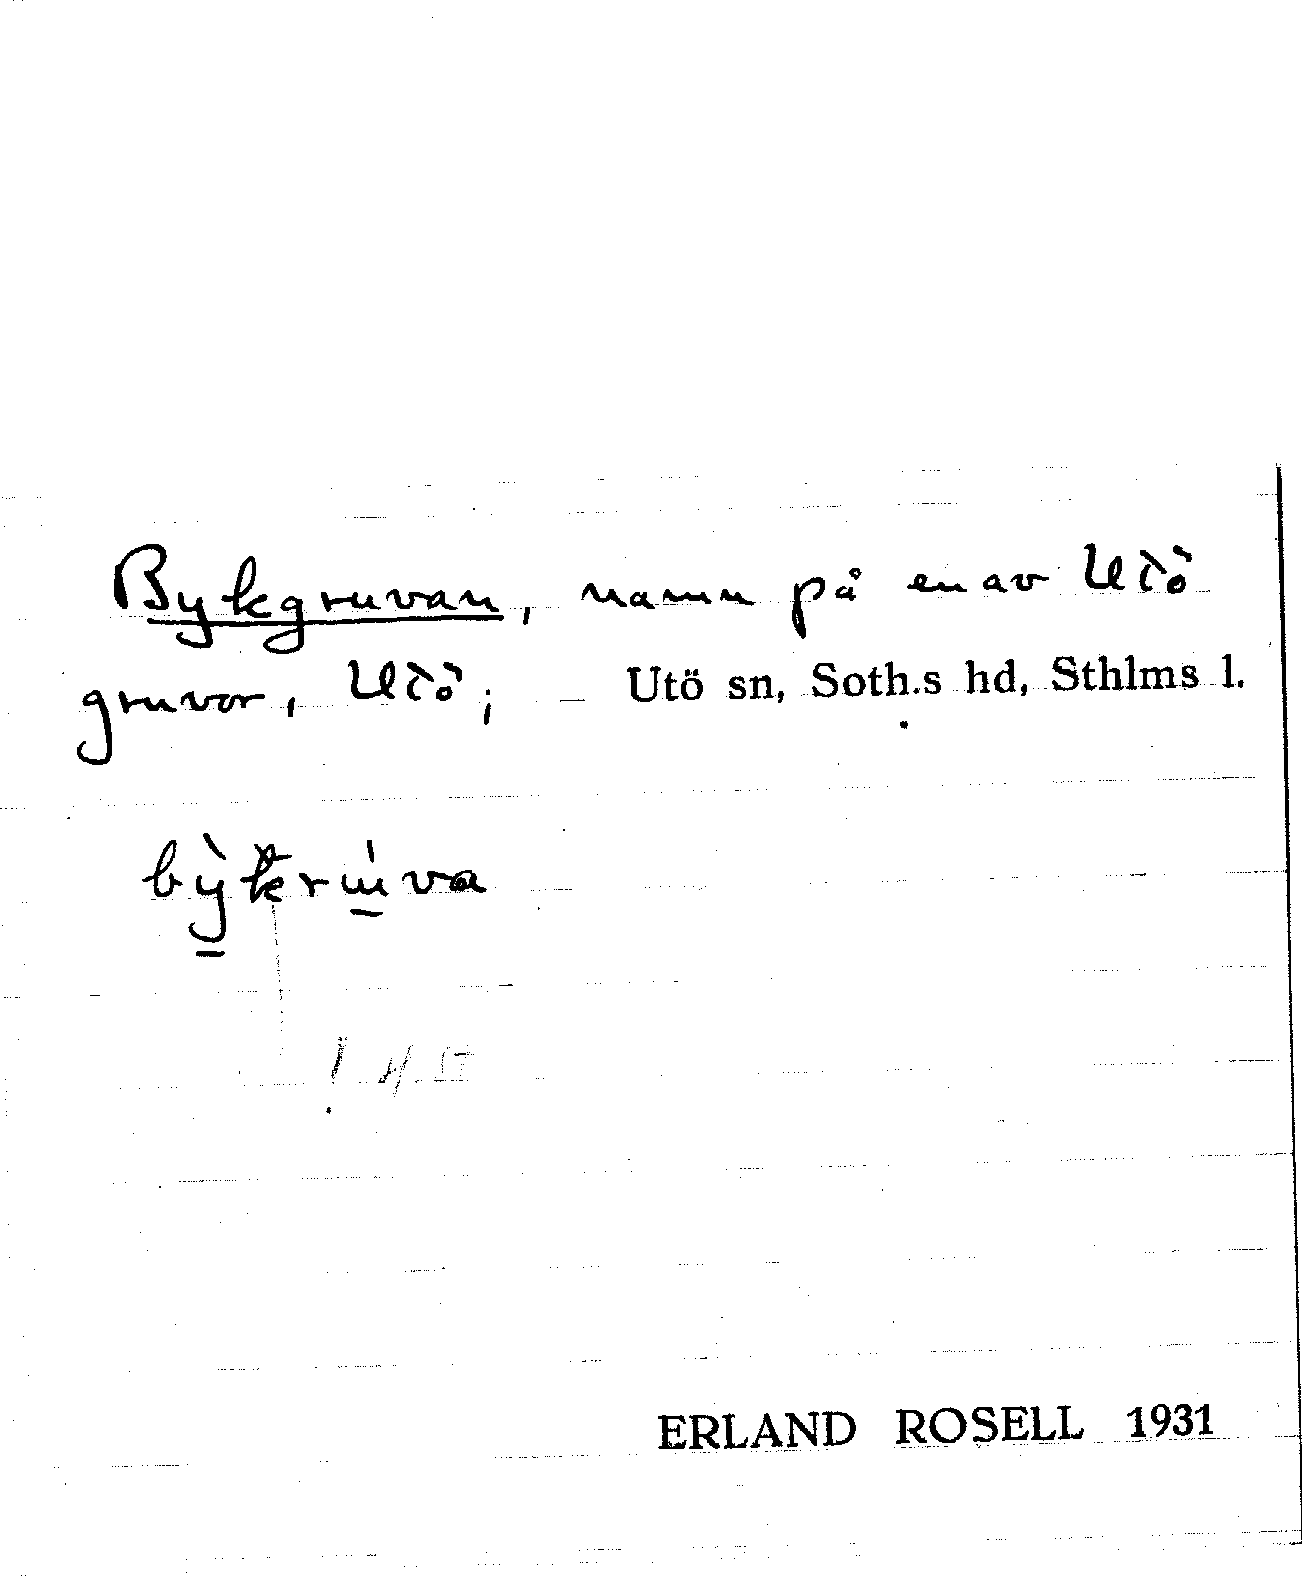 Bykgruvan, namn på en av Utö
gruvor, Utö; — Utö sn, Soth.s hd, Sthlms l.
bỳkrúva
ERLAND ROSELL 1931